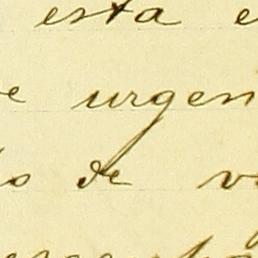 esta e
e urgen
s de v